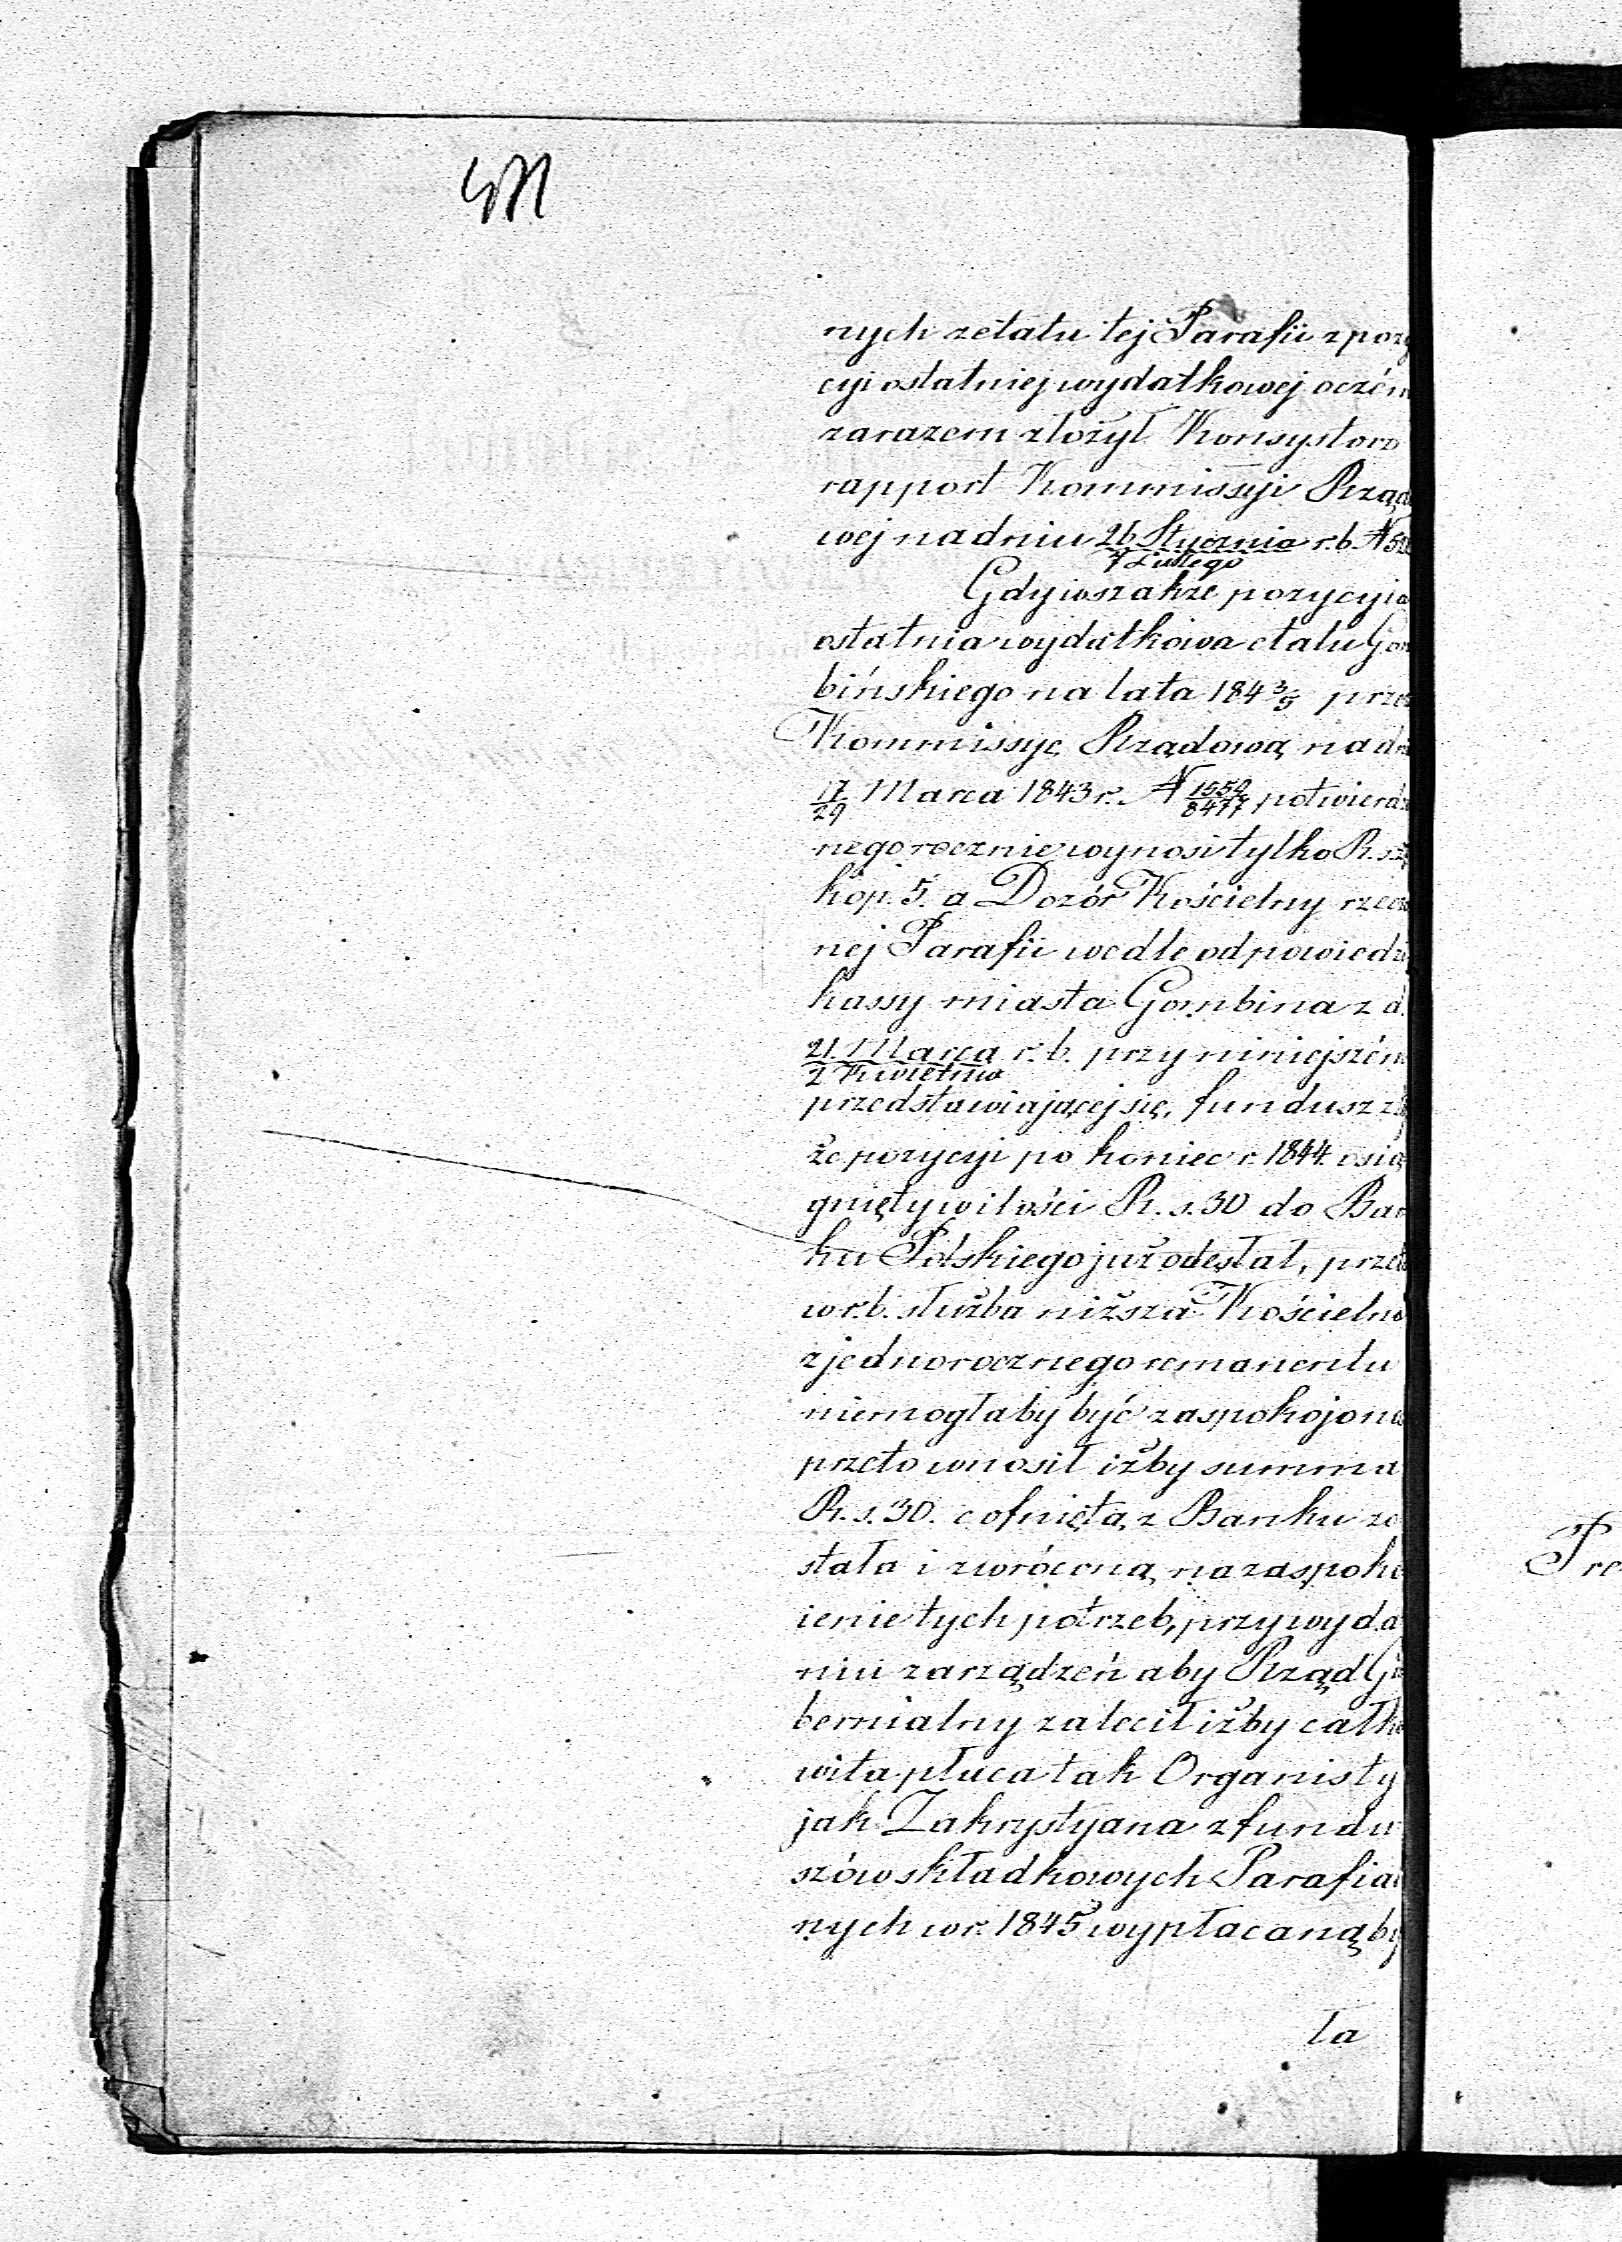 nych z etatu tej Parafii z pozy
cyi ostatniej wydatkowej oczém
zarazem złożył Konsystorz
rapport Kommissyi Rządo
wej na dniu 26 Stycznia / 7 Lutego r. b. N
Gdy wszakże pozycyia
ostatnia wydatkowa etatu Gom
bińskiego na lata 184 3/5 przez
Kommissyę Rządową na dn
17/29 Marca 1843 r. N 1559/8477 potwierdzo
nego rocznie wynosi tylko R. s.
kop. 5. a Dozór Kościelny rzeczo
nej Parafii wedle odpowiedzi
kassy miasta Gombina z d.
21. Marca / 2 Kwietnia r. b. przy niniejszém
przedstawiającej się, fundusz z
że pozycyi po koniec r. 1844. osią
gnięty w ilości R. s. 30 do Ban
ku Polskiego już odesłał, przeto
w r. b. służba niższa Kościelna
z jednorocznego remanentu
niemogłaby być zaspokojona
przeto wnosił iżby summa
R. s. 30. cofniętą z Banku zo
stała i zwróconą na zaspoko
ienie tych potrzeb, przy wyda
niu zarządzeń aby Rząd Gu
bernialny zalecił iżby całko
wita płaca tak Organisty
jak Zakrystyana z fundu
szów składkowych Parafial
nych w r. 1845 wypłacaną by
ła
Pre